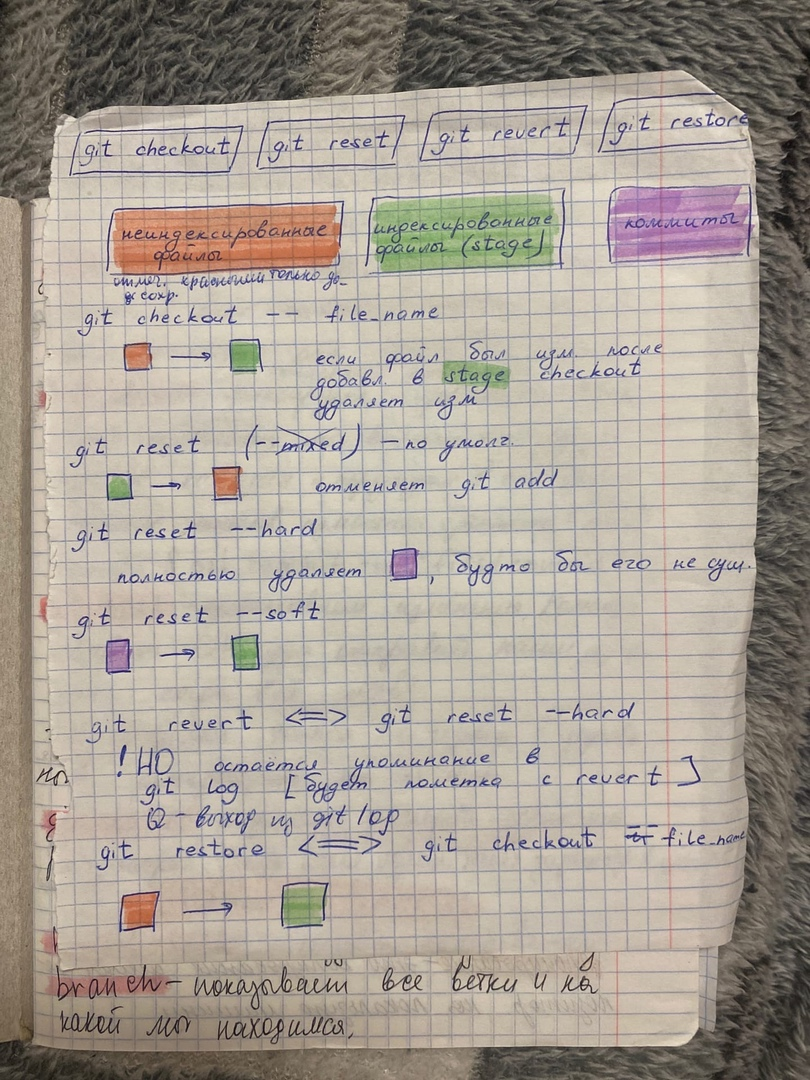 git checkout git reset git revert git restore
неиндексированные файлы
индексированные файлы (stage)
коммиты
отмеч. красным только до
сохр.
git checkout -- file_name
если файл был изм. после
добавл. в stage checkout
удаляет изм
git reset (--mixed) – по умолч.
отменяет git add
git reset --hard
полностью удаляет , будто бы его не сущ.
git reset --soft
git revert <=> git reset --hard
! НО остаётся упоминание в
git log [будет пометка с revert]
Q – выход из git log
git restore <=> git checkout -- file_name
branch – показывает все ветки и на
какой мы находимся.